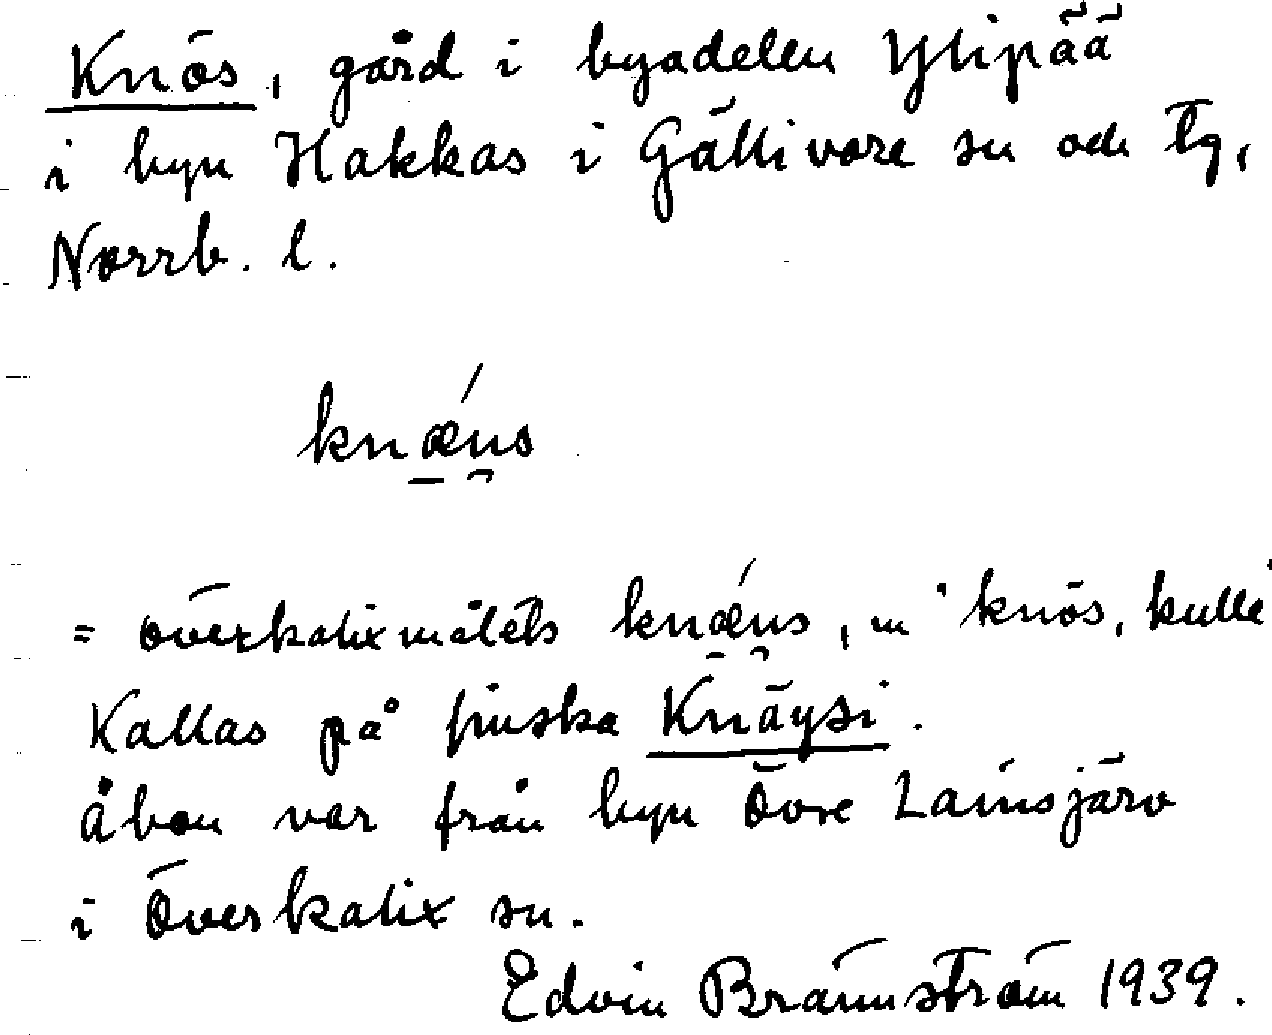 Knös, gård i byadelen Ylipää
i byn Hakkas i Gällivare sn och tg,
Norrb. l.
knǽu̯s
= överkalixmålets knǽu̯s, m 'knös, kulle'
Kallas på finska Knäysi.
Åbon var från byn Övre Lainsjärv
i Överkalix sn.
Edvin Brännström 1939.